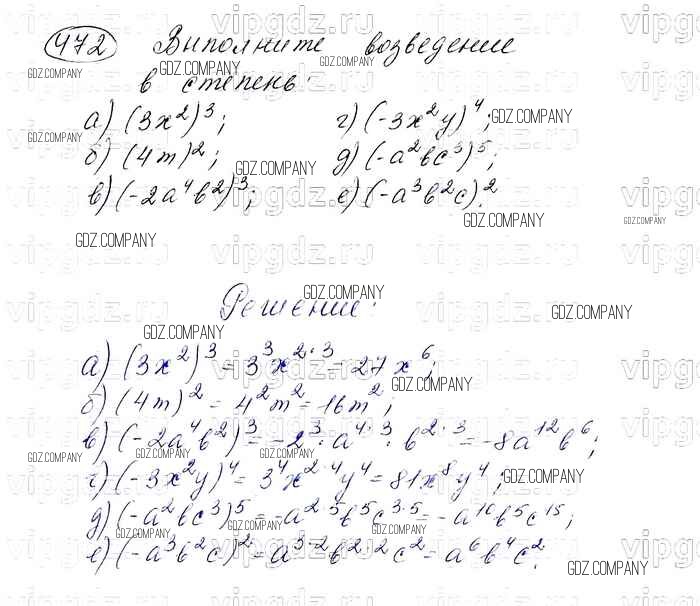 472 Выполните возведение
в степень:
а) (3x²)³; г) (-3x²y)⁴;
б) (4m)²; д) (-a²bc³)⁵;
в) (-2a⁴b²)³; е) (-a³b²c)².
Решение:
а) (3x²)³ = 3³x²·³ = 27x⁶;
б) (4m)² = 4²m² = 16m²;
в) (-2a⁴b²)³ = -2³·a⁴·³·b²·³ = -8a¹²b⁶;
г) (-3x²y)⁴ = 3⁴x²·⁴y⁴ = 81x⁸y⁴;
д) (-a²bc³)⁵ = -a²·⁵b⁵c³·⁵ = -a¹⁰b⁵c¹⁵;
е) (-a³b²c)² = a³·²b²·²c² = a⁶b⁴c².